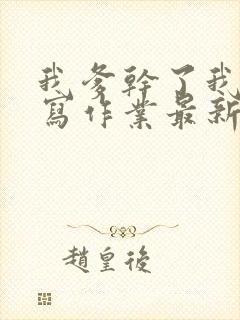 我爹幹了我
寫作業最新
趙皇後